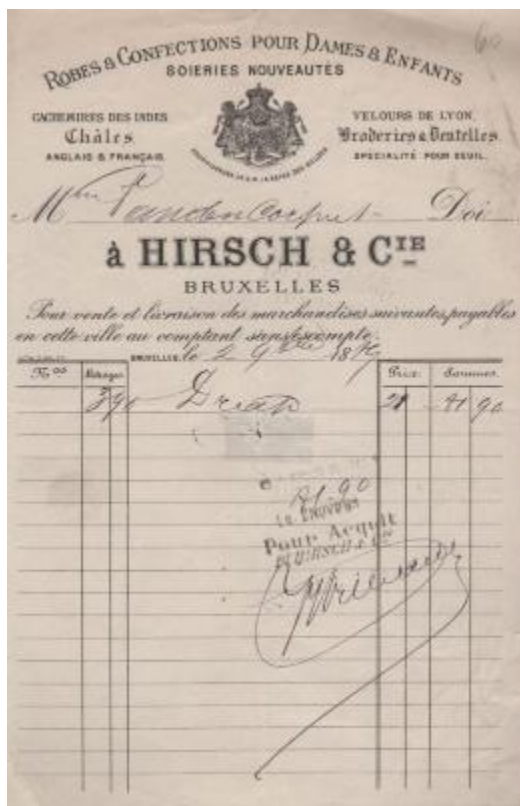 60
ROBES & CONFECTIONS POUR DAMES & ENFANTS
SOIERIES NOUVEAUTÉS
CACHEMIRES DES INDES
Châles
ANGLAIS & FRANÇAIS.
VELOURS DE LYON.
Broderies & Dentelles.
SPÉCIALITÉ POUR DEUIL.
Mme Doi
à HIRSCH & CIE
BRUXELLES
Pour vente et livraison des marchandises suivantes, payables
en cette ville au comptant sans escompte.
BRUXELLES, le 2 9bre 18
Nos Métrages Prix Sommes
3 90 Drap 21 81 90
81 90
Pour Acquit
HIRSCH & Cie